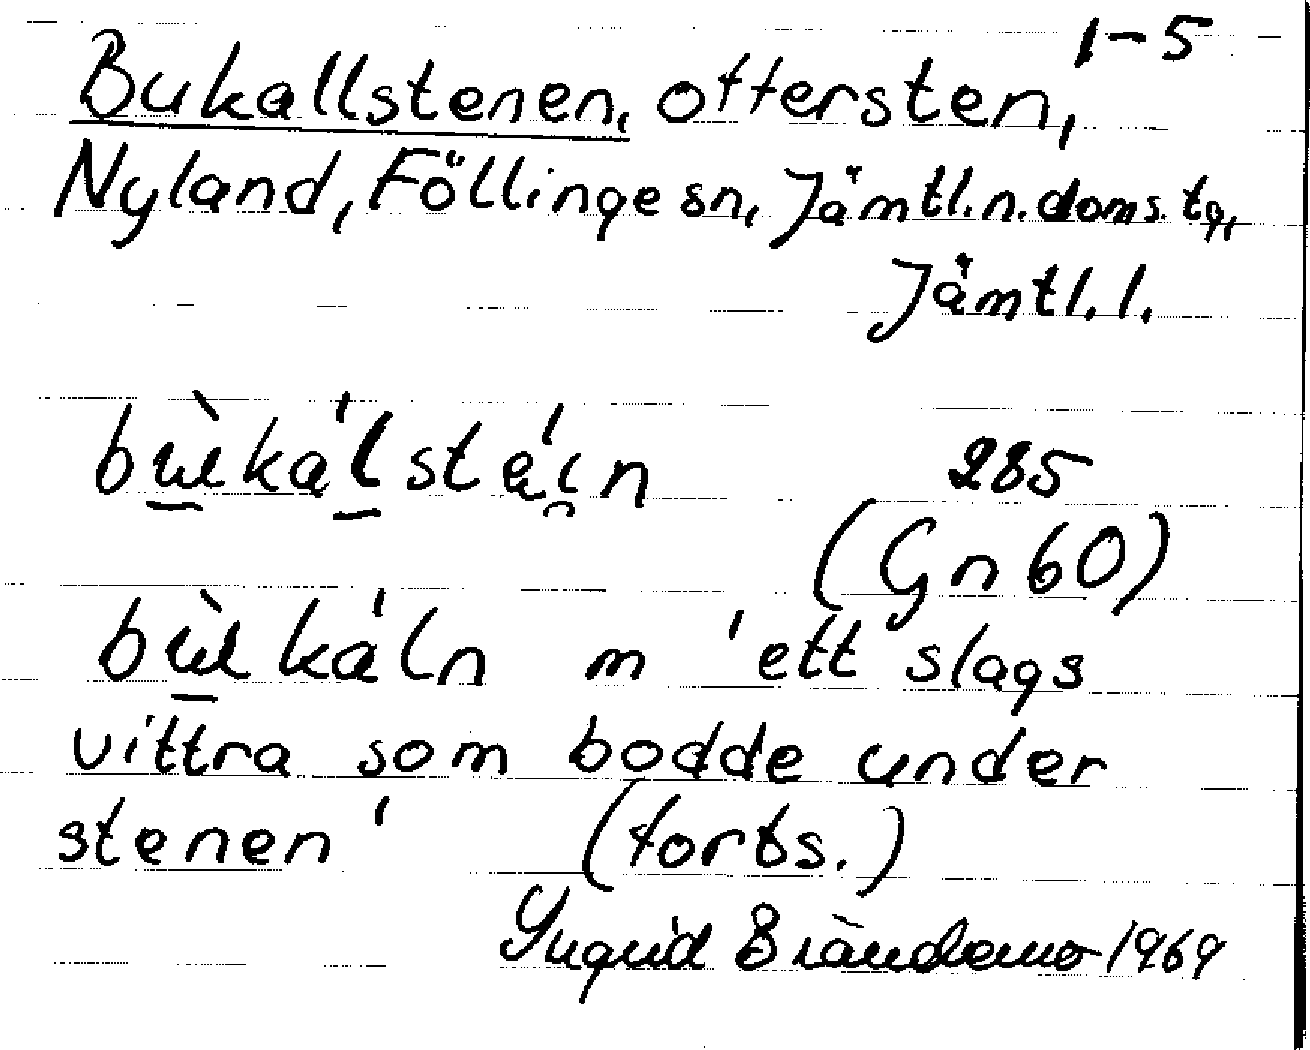 1-5
Bukallstenen, offersten,
Nyland, Föllinge sn, Jämtl.n.doms.tg,
Jämtl.l.
bɯ̀kálstáin 285
(Gn 60)
bɯ̀káln m 'ett slags
vittra som bodde under
stenen' (forts.)
Ingrid Brändemo 1969